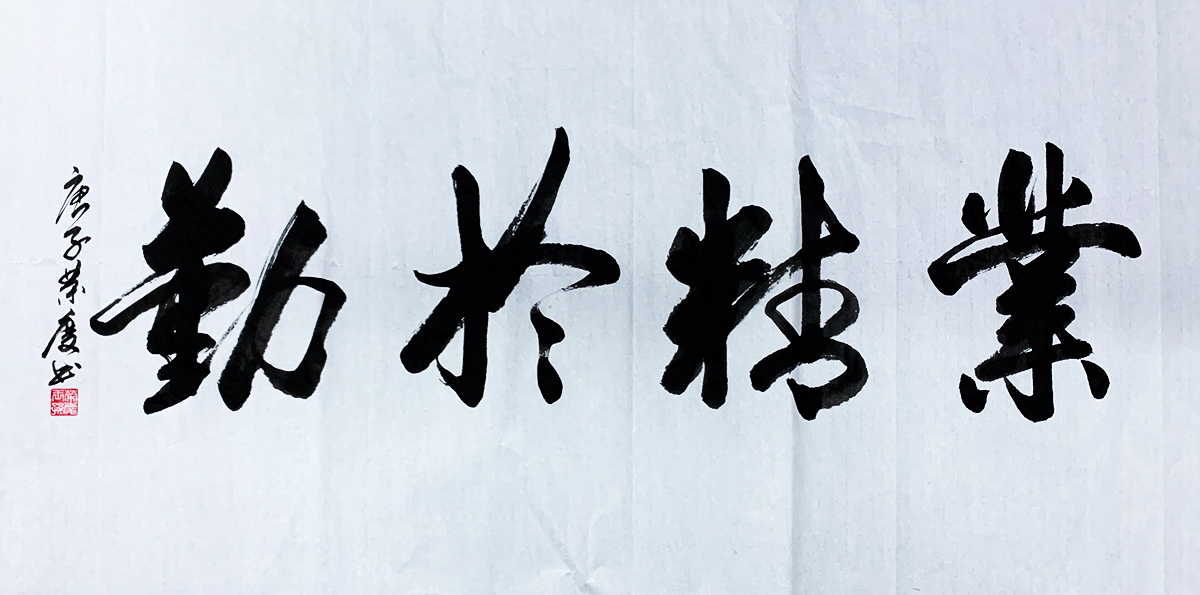 業精於勤
庚子榮慶书